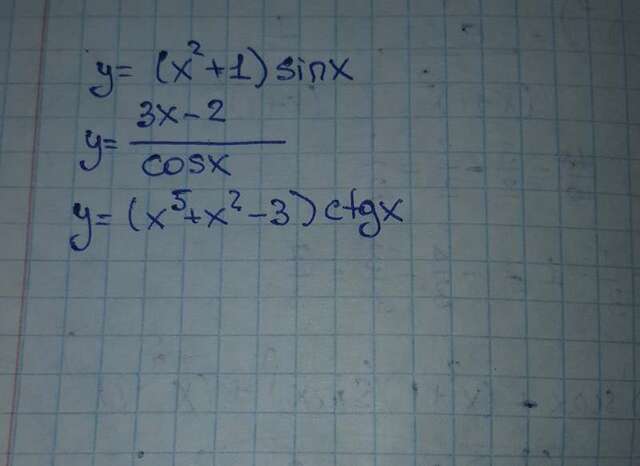 y= (x²+1) sinx
y= 3x-2
cosx
y= (x⁵+x²-3) ctgx